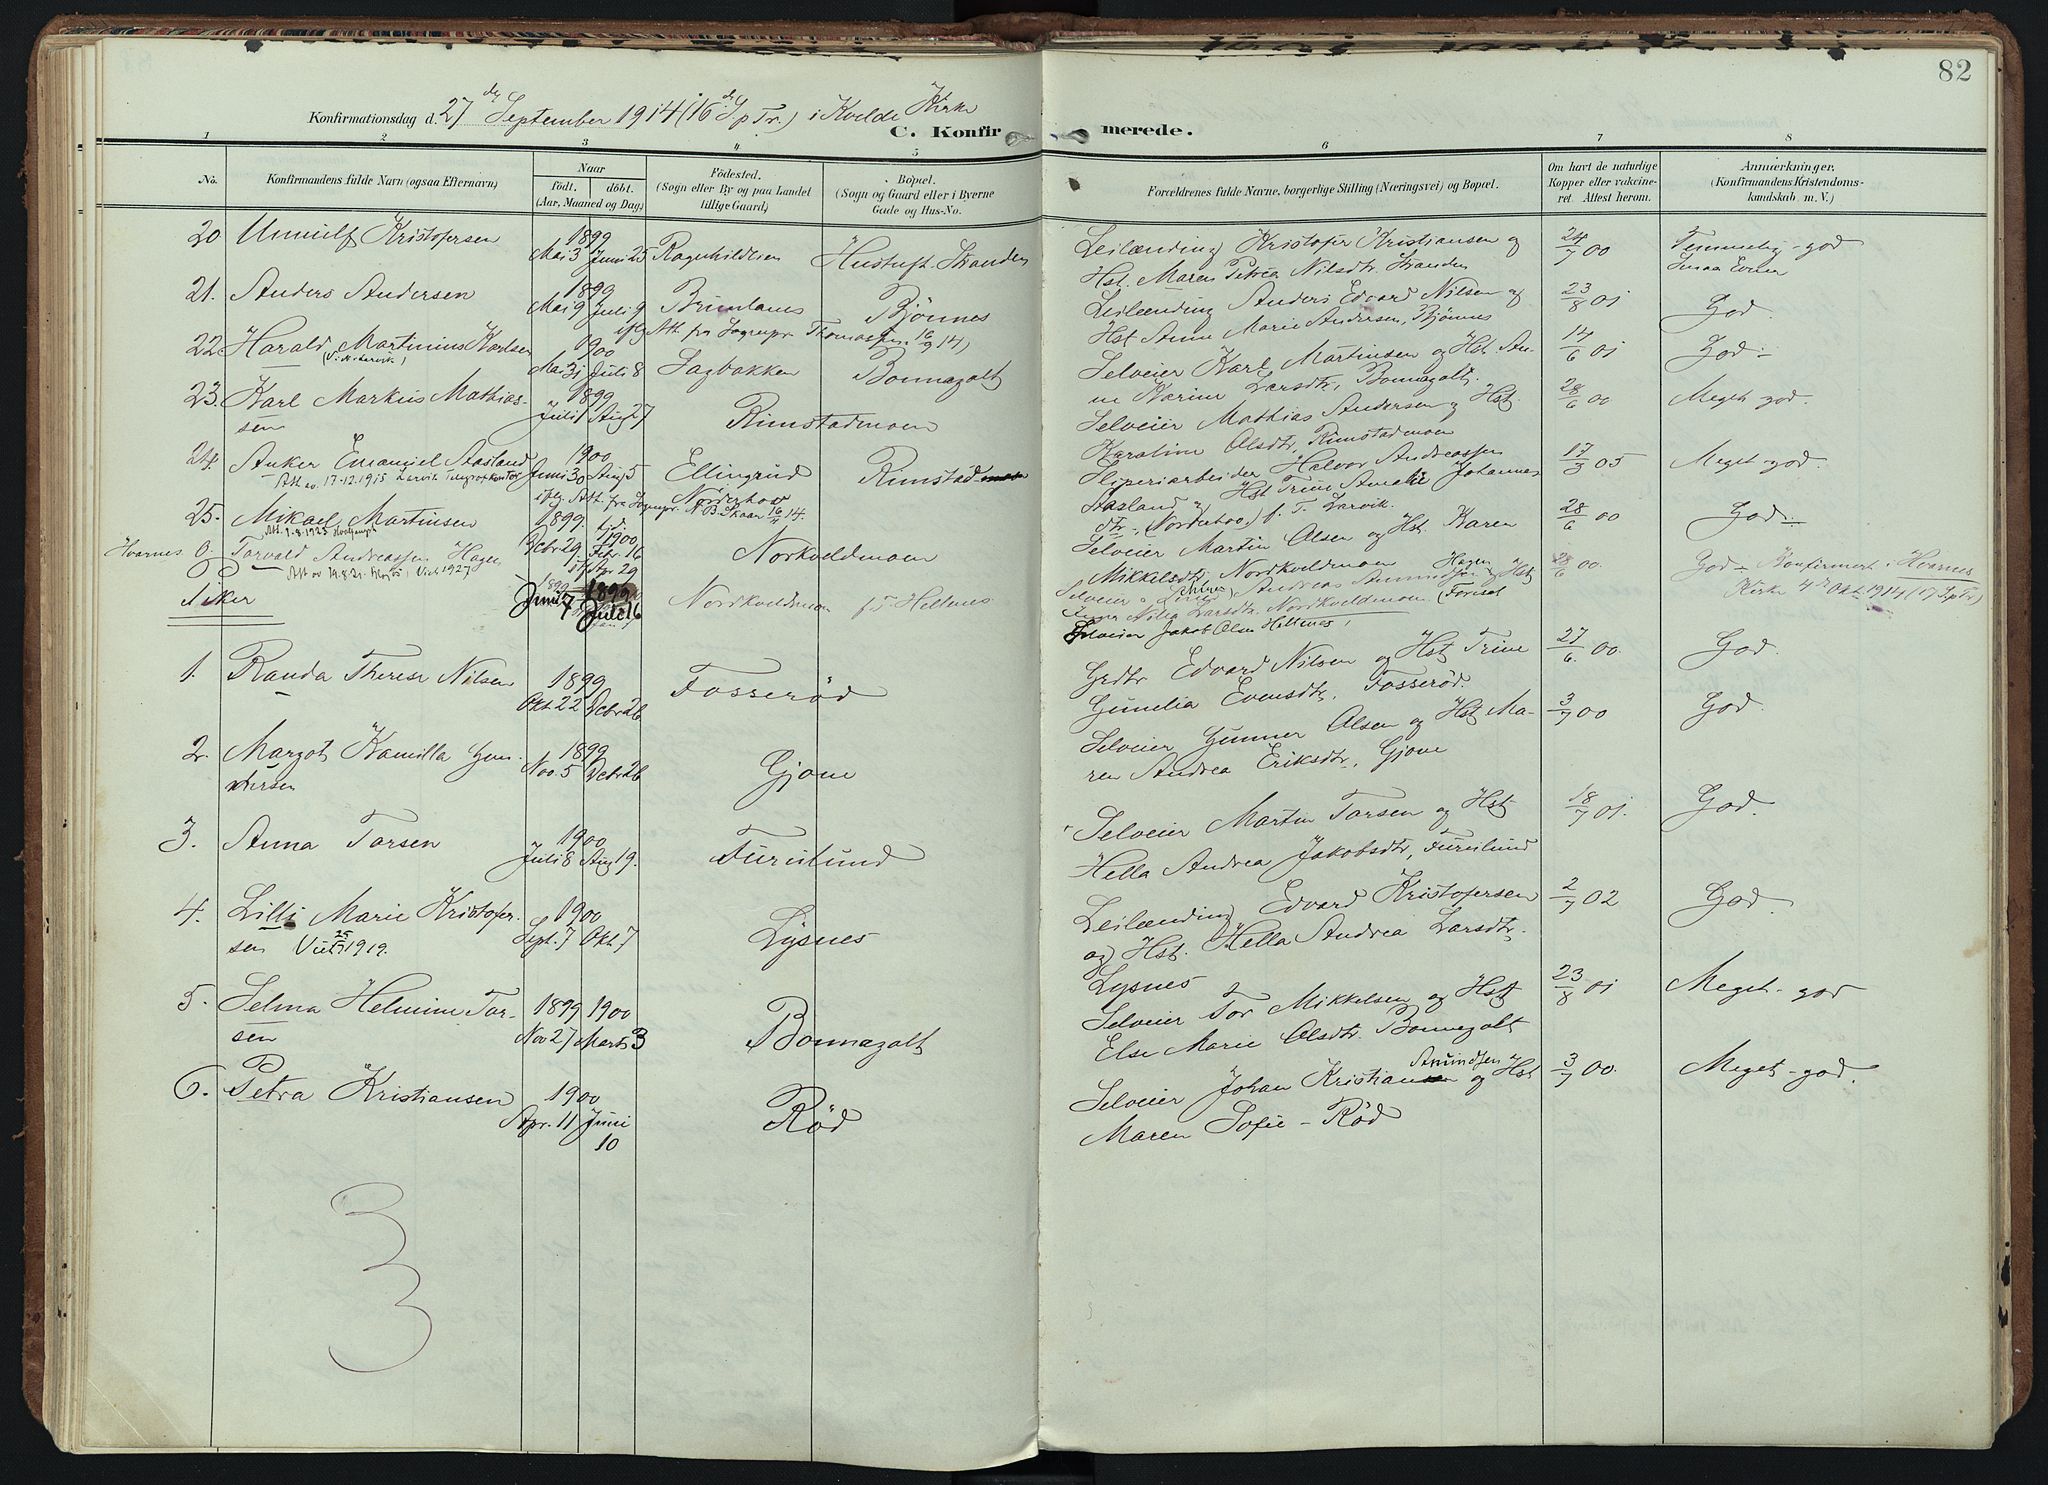 82
Konfirmationsdag d. 27 de September 1914 (16 d. S. p Tr.) i Kvelde Kirke
C. Konfir merede.
1 2 3 4 5 6 7 8
No.
Konfirmandens fulde Navn (ogsaa Efternavn)
Naar
født. døbt.
(Aar, Maaned og Dag)
Fødested.
(Sogn eller By og paa Landet
tillige Gaard)
Bopæl.
(Sogn og Gaard eller i Byerne
Gade og Hus-No.
Forældrenes fulde Navne, borgerlige Stilling (Næringsvei) og Bopæl.
Om havt de naturlige
Kopper eller vakcine-
ret. Attest herom.
Anmærkninger.
(Konfirmandens Kristendoms-
kundskab m. V.)
20 Kristofersen 1899 Mai 3 Juni 25 Ragnhildlien Stranden
Leilænding Kristofer Kristiansen og 24/7 00 Temmelig god
Hst. Maren Petrea Nilsdtr. Stranden Smaa Evner
21. Anders Andersen 1899 Mai 9 Juli 9 Brunlanes Bjønnes
Leilænding Anders Edvard Nilsen og 23/8 01 God.
Hst Anne Marie Andersen, Bjønnes
iflg Att. fra Sognepr. Thomassen 16/9 14)
22 Harald Martinius Karlsen 1900 Mai 31 Juli 8 Sagbakken Bonnagolt
Selveier Karl Martinsen og Hst. An- 14/6 01 God
ne Karine Larsdtr, Bonnagolt.
23. Karl Markus Mathias-
sen 1899 Juli 1 Aug 27 Rimstadmoen
Selveier Mathias Andersen og Hst. 28/6 00 Meget god.
Karoline Olsdtr. Rimstadmoen
24. Anker Emanuel Aasland 1900 Juni 30 Aug 5 Ellingrud Rimstad
Att. av 17-12.1915 Larvik Telegrafkontor
Sliperiarbeider Halvor Andreassen 17/3 05 Meget god.
Aasland og Hst Trine Amalie Johannes
dtr. (Norderhov) f. T. Larvik.
iflg. Att. fra Sognepr. N. B. Skaar 16/4 14. Norderhov
25. Mikael Martinsen 1899 Debr 29. 1900 Febr. 16 Norkveldmoen
Selveier Martin Olsen og Hst Karen 28/6 00 God
Mikkelsdtr, Nordkveldmoen
Hvarnes 0 Torvald Andreassen Hagen 1899 Apr 29 Nordkveldmoen
Selveier Andreas Amundsen Hagen og Hst 28/6 00. God - Konfirmert i Hvarnes
Larsdtr. Nordkveldmoen Kirke 4de Okt. 1914 (17 S p Tr)
Selveier Jakob Olsen
Piker
1. Randa Therese Nilsen 1899 Okt 22 Debr 26 Fosserød
Grdbr Edvard Nilsen og Hst Trine 27/6. 00. God.
Gunelia Evensdtr, Fosserød.
2. Margot Kamilla Gun-
nersen 1899 Nov. 5 Debr 26 Gjone
Selveier Gunner Olsen og Hst Ma- 3/7 00 God.
ren Andrea Eriksdtr, Gjone
3. Anna Torsen 1900 Juli 8 Aug 19. Furulund
Selveier Martin Torsen og Hst 18/7 01. God.
Hella Andrea Jakobsdtr, Furulund
4. Lilli Marie Kristofer-
sen Viet 1919. 1900 Sept. 7 Okt 7 Lysnes
Leilænding Edvard Kristofersen 2/7 02 God.
og Hst. Hella Andrea Larsdtr.
Lysnes
5. Selma Helmine Tor-
sen 1899 Nov 27 1900 Marts 3 Bonnagolt
Selveier Tor Mikkelsen og Hst 23/8 01 Meget god
Else Marie Olsdtr. Bonnegolt
6. Petra Kristiansen 1900 Apr. 11 Juni 10 Rød
Selveier Johan Kristian Amundsen og Hst 3/7 00. Meget god.
Maren Sofie - Rød